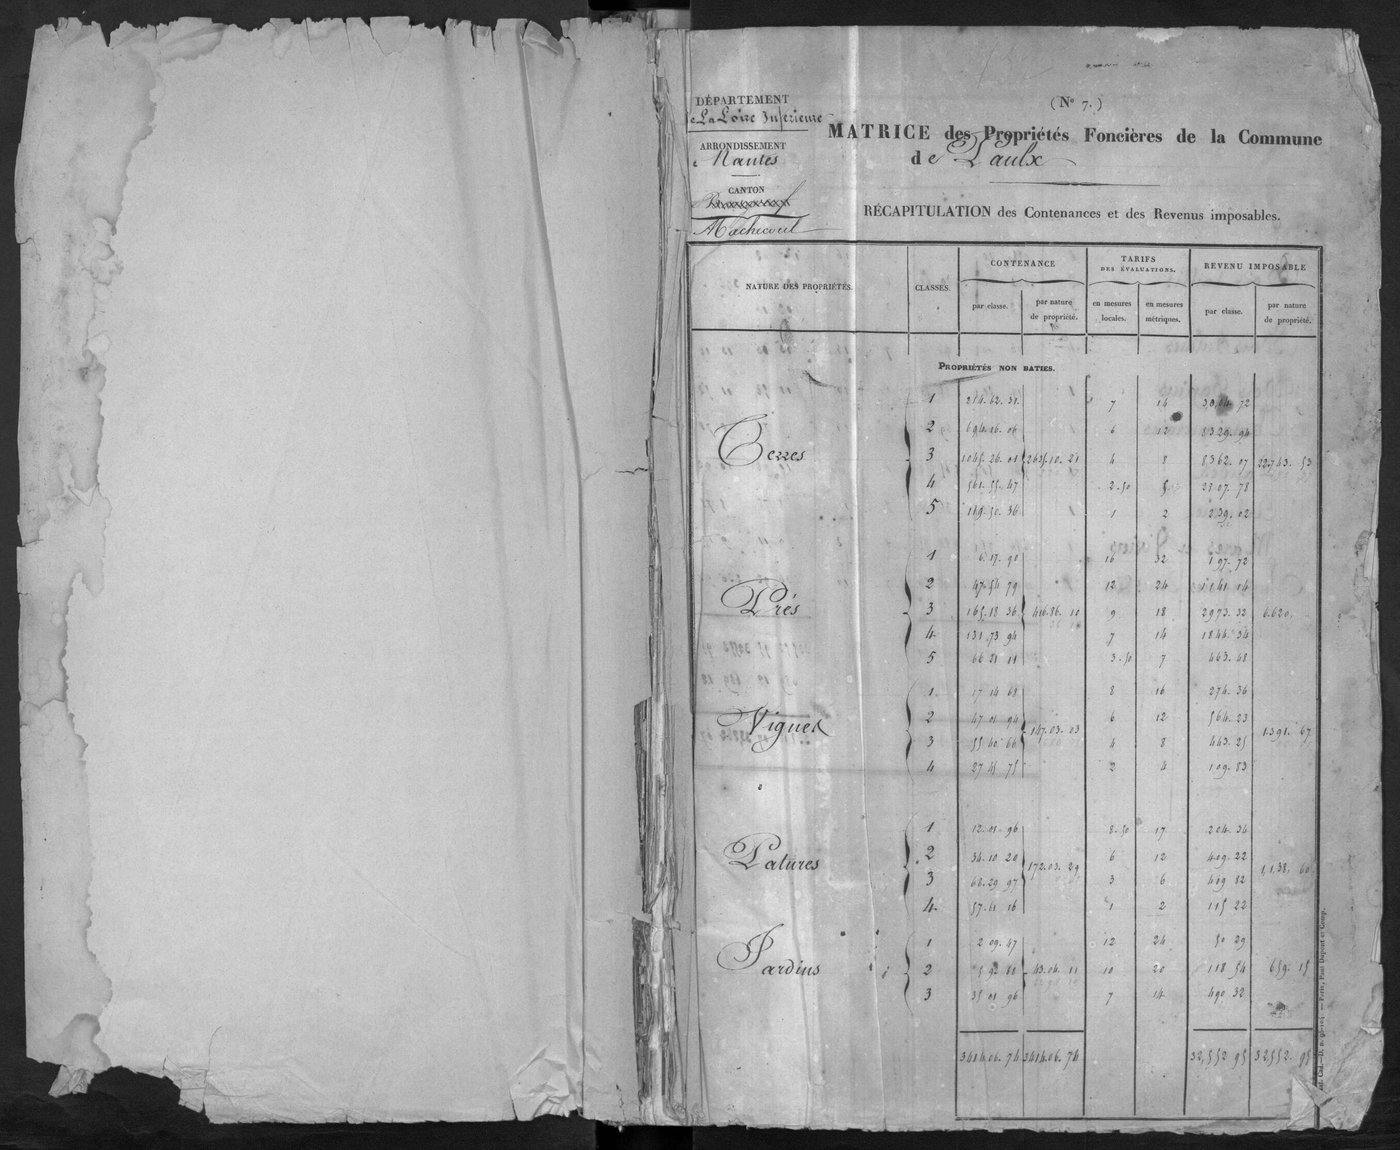 DÉPARTEMENT
de La Loire Inférieure
ARRONDISSEMENT
de Nantes
CANTON
Machecoul
(N° 7.)
MATRICE des Propriétés Foncières de la Commune
de Paulx
RÉCAPITULATION des Contenances et des Revenus imposables.
NATURE DES PROPRIÉTÉS. CLASSES. CONTENANCE TARIFS DES ÉVALUATIONS. REVENU IMPOSABLE
par classe. par nature de propriété. en mesures locales. en mesures métriques. par classe. par nature de propriété.
PROPRIÉTÉS NON BATIES.
1 214. 62. 31. 7 14 30,04. 72
2 694. 16. 06 6 12 8329. 94
Terres 3 1045. 26. 01 2635. 10. 21 4 8 8362. 07 22,743. 53
4 561. 55. 47 2.50 5 2807. 78
5 119. 50. 36 1 2 239. 02
1 6. 17. 90 16 32 197. 72
2 47. 54 79 12 24 1141 14
Prés 3 165. 18 36 416. 86. 10 9 18 2973. 32 6.620.
4 131. 73 94 7 14 1844. 34
5 66 21 11 3.50 7 463. 48
1 17 14 68 8 16 274. 36
Vignes 2 47. 01 94 147. 03. 03 6 12 564. 23 1.391. 67
3 55 40 66 4 8 443. 25
4 27 45 75 2 4 109. 83
1 12. 01. 96 8.50 17 204. 34
Patures 2 34. 10 20 172. 03. 29 6 12 409. 22 1,138. 60
3 68. 29 97 3 6 409 82
4 57. 61 16 1 2 115 22
1 2 09. 47 12 24 50 29
Jardins 2 5 92. 81 43. 04. 11 10 20 118 54 659. 15
3 35 01 96 7 14 490 32
3414. 06. 74 3414. 06. 74 32,552 95 32,552. 95